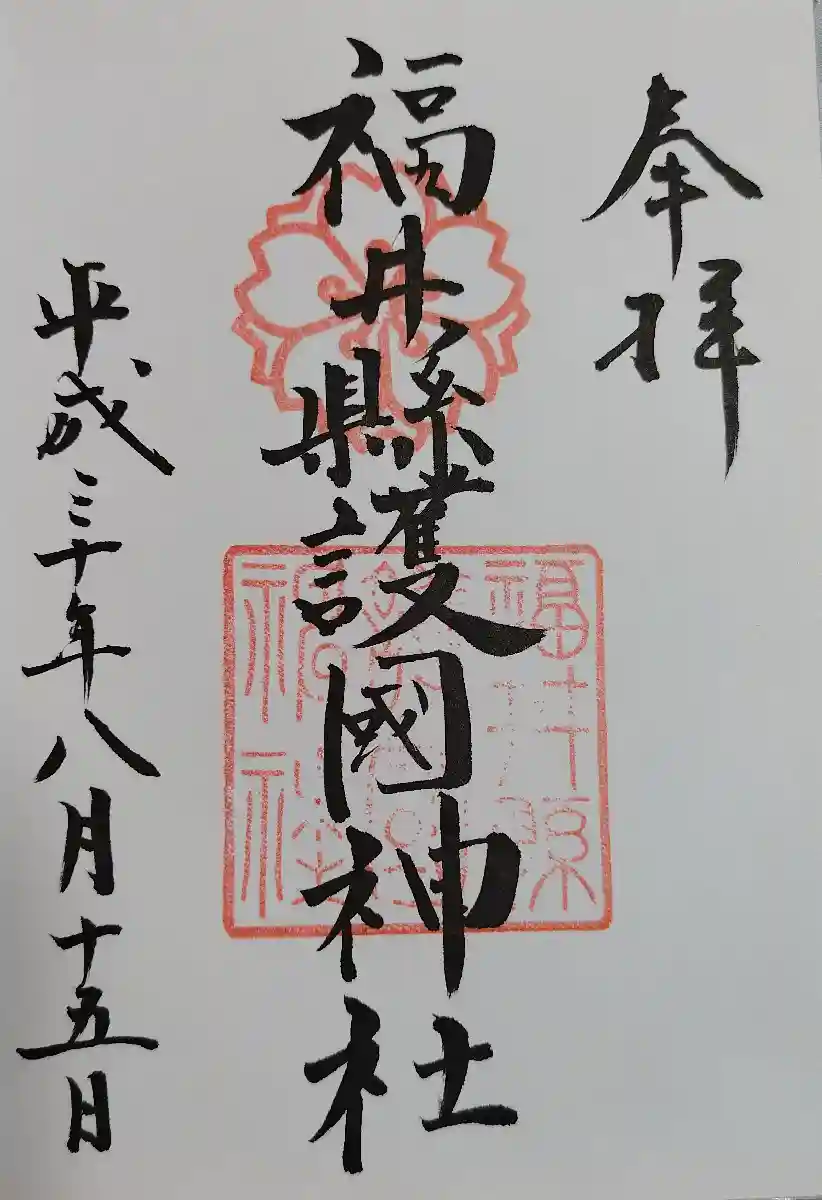 奉拝
福井縣護國神社
平成三十年八月十五日
福井縣
護國
神社